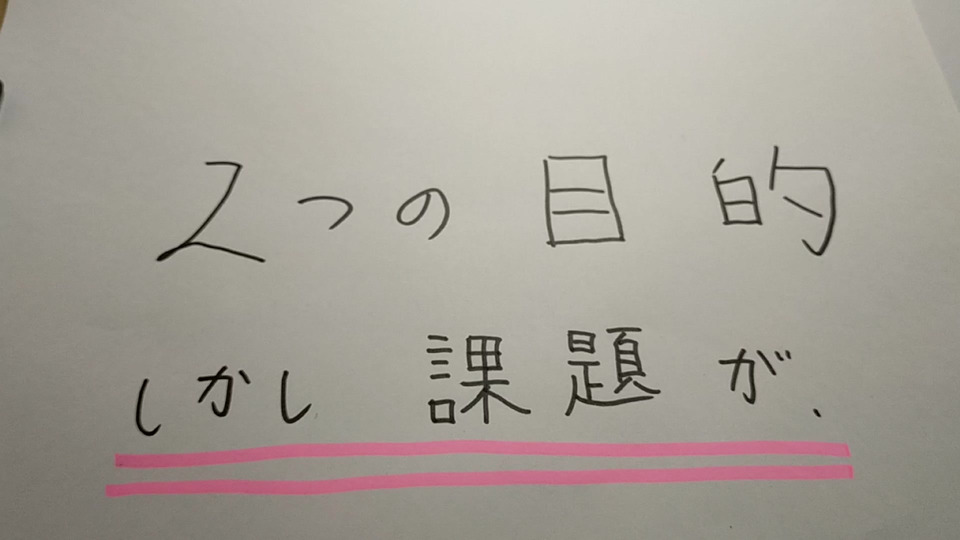 2つの目的
しかし課題が、